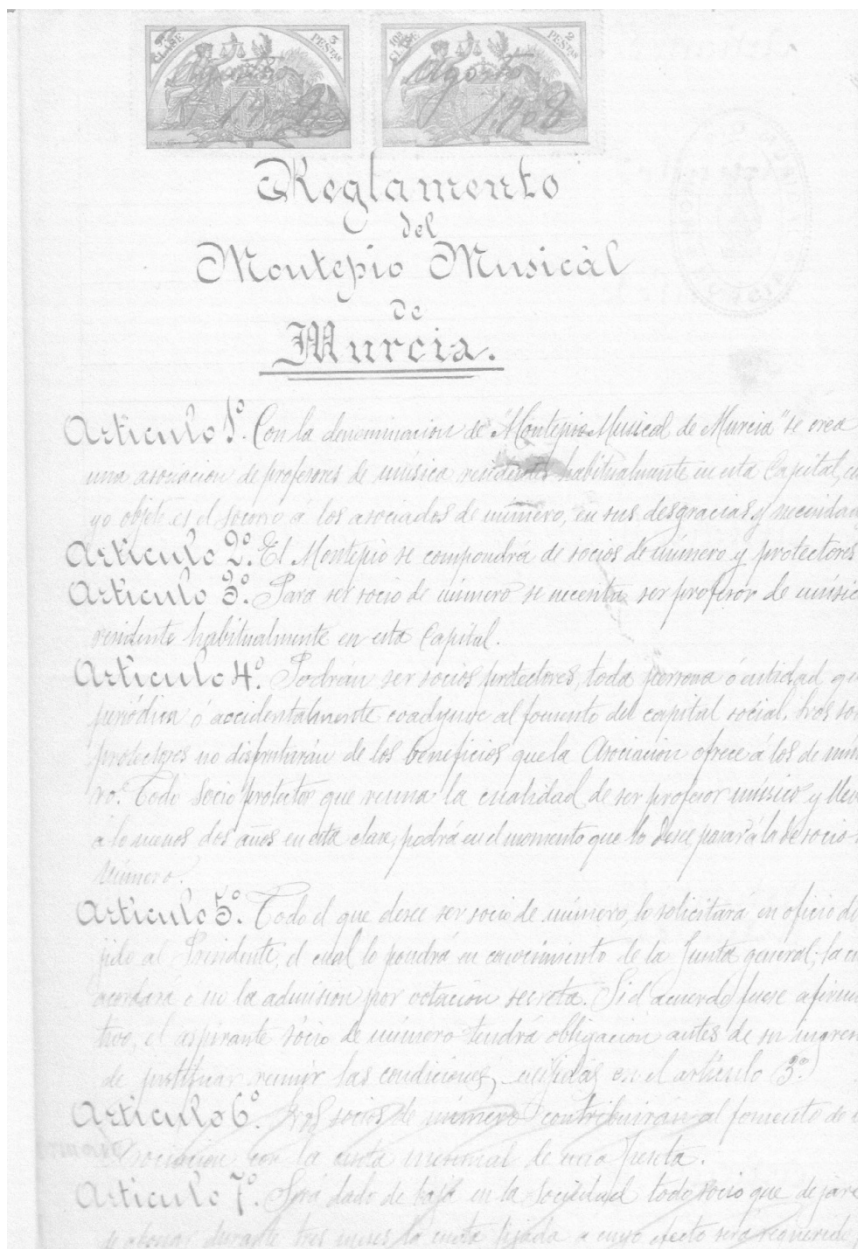 CLASE 3 PESETAS
10ª CLASE 2 PESETAS
Agosto Agosto
1908 1908
Reglamento
del
Montepio Musicàl
de
Murcia.
Articulo 1º. Con la denominacion de "Montepio Musical de Murcia" se crea
una asociacion de profesores de música residentes habitualmente en esta Capital, cu
yo objeto es el socorro á los asociados de número, en sus desgracias y necesidad
Articulo 2º. El Montepio se compondrá de socios de número y protectores
Articulo 3º. Para ser socio de número se necesita ser profesor de músic
residente habitualmente en esta Capital.
Articulo 4º. Podrán ser socios protectores, toda persona ó entidad qu
periódica ó accidentalmente coadyuve al fomento del capital social. Los so
protectores no disfrutarán de los beneficios que la Asociacion ofrece á los de núm
ro. Todo socio protector que reuna la cualidad de ser profesor músico y lleve
á lo menos dos años en esta clase, podrá en el momento que lo desee pasar á la de socio
número.
Articulo 5º. Todo el que desee ser socio de número, lo solicitará en oficio di
jido al Presidente; el cual lo pondrá en conocimiento de la Junta general; la cu
acordará ó no la admision por votacion secreta. Si el acuerdo fuese afirma
tivo, el aspirante sócio de número tendrá obligacion antes de su ingreso
de justificar reunir las condiciones, exijidas en el artículo (3º)
Articulo 6º. Los socios de número contribuirán al fomento de
Asociacion con la cuota mensual de una peseta.
Articulo 7º. Será dado de baja en la sociedad todo socio que dejare
de abonar durante tres meses la cuota fijada á cuyo efecto será requerido